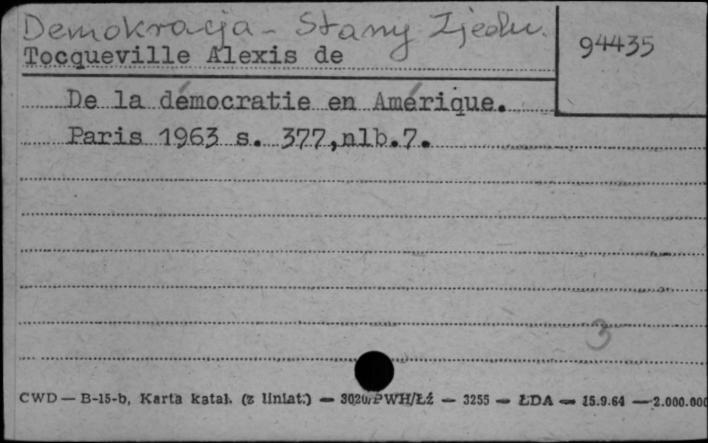 Demokracja - Stany Zjedn.
94435
Tocqueville Alexis de
De la démocratie en Amérique.
Paris 1963 s. 377,nlb.7.
3
CWD — B-15-b, Karta katal. (z liniat.) — 3020/PWH/Łź — 3255 — ŁDA — 15.9.64 — 2.000.000